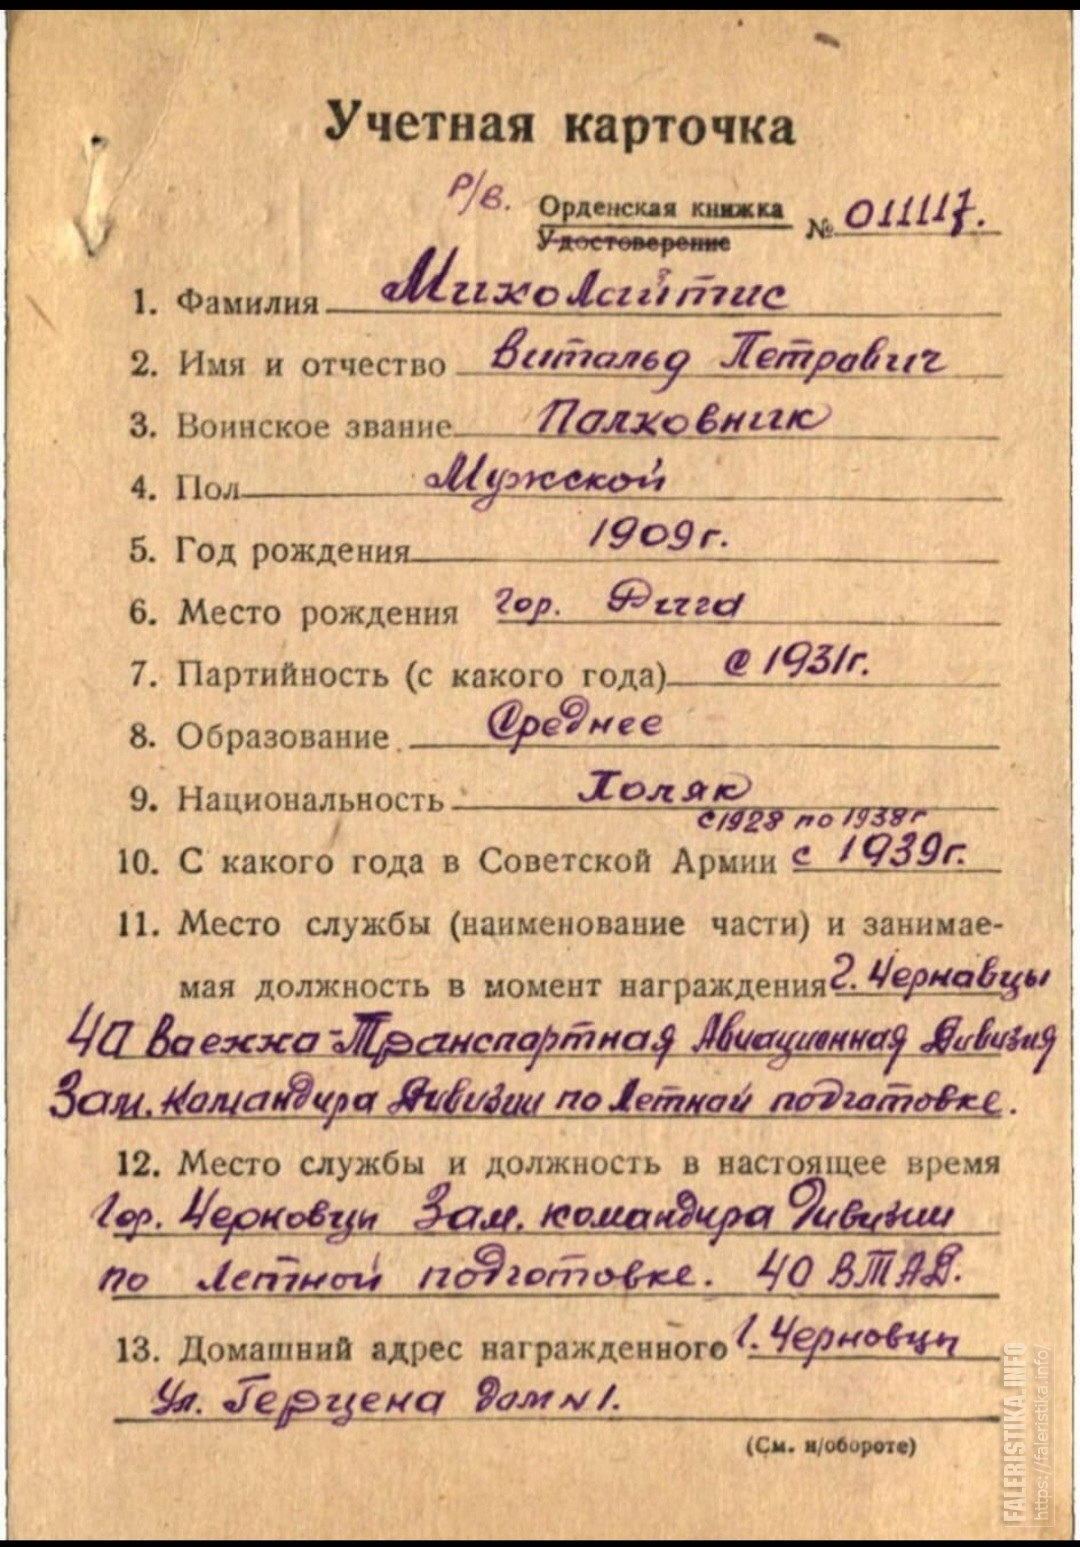 Учетная карточка
Р/В. Орденская книжка
Удостоверение № 011117.
1. Фамилия Миколайтис
2. Имя и отчество Витальд Петравич
3. Воинское звание Палковник
4. Пол Мужской
5. Год рождения 1909г.
6. Место рождения гор. Рига
7. Партийность (с какого года) с 1931г.
8. Образование Среднее
9. Национальность Поляк
с 1928 по 1938г
10. С какого года в Советской Армии с 1939г.
11. Место службы (наименование части) и занимае-
мая должность в момент награждения г. Чернавцы
40 Ваенна-Транспартная Авиационная Дивизия
Зам. Командира Дивизии по Летнай подгатовке.
12. Место службы и должность в настоящее время
гор. Черновцы Зам. командира Дивизии
по Летной подготовке. 40 ВТАД.
13. Домашний адрес награжденного г. Черновцы
Ул. Герцена дом N 1.
(См. н/обороте)
FALERISTIKA.INFO
https://faleristika.info/